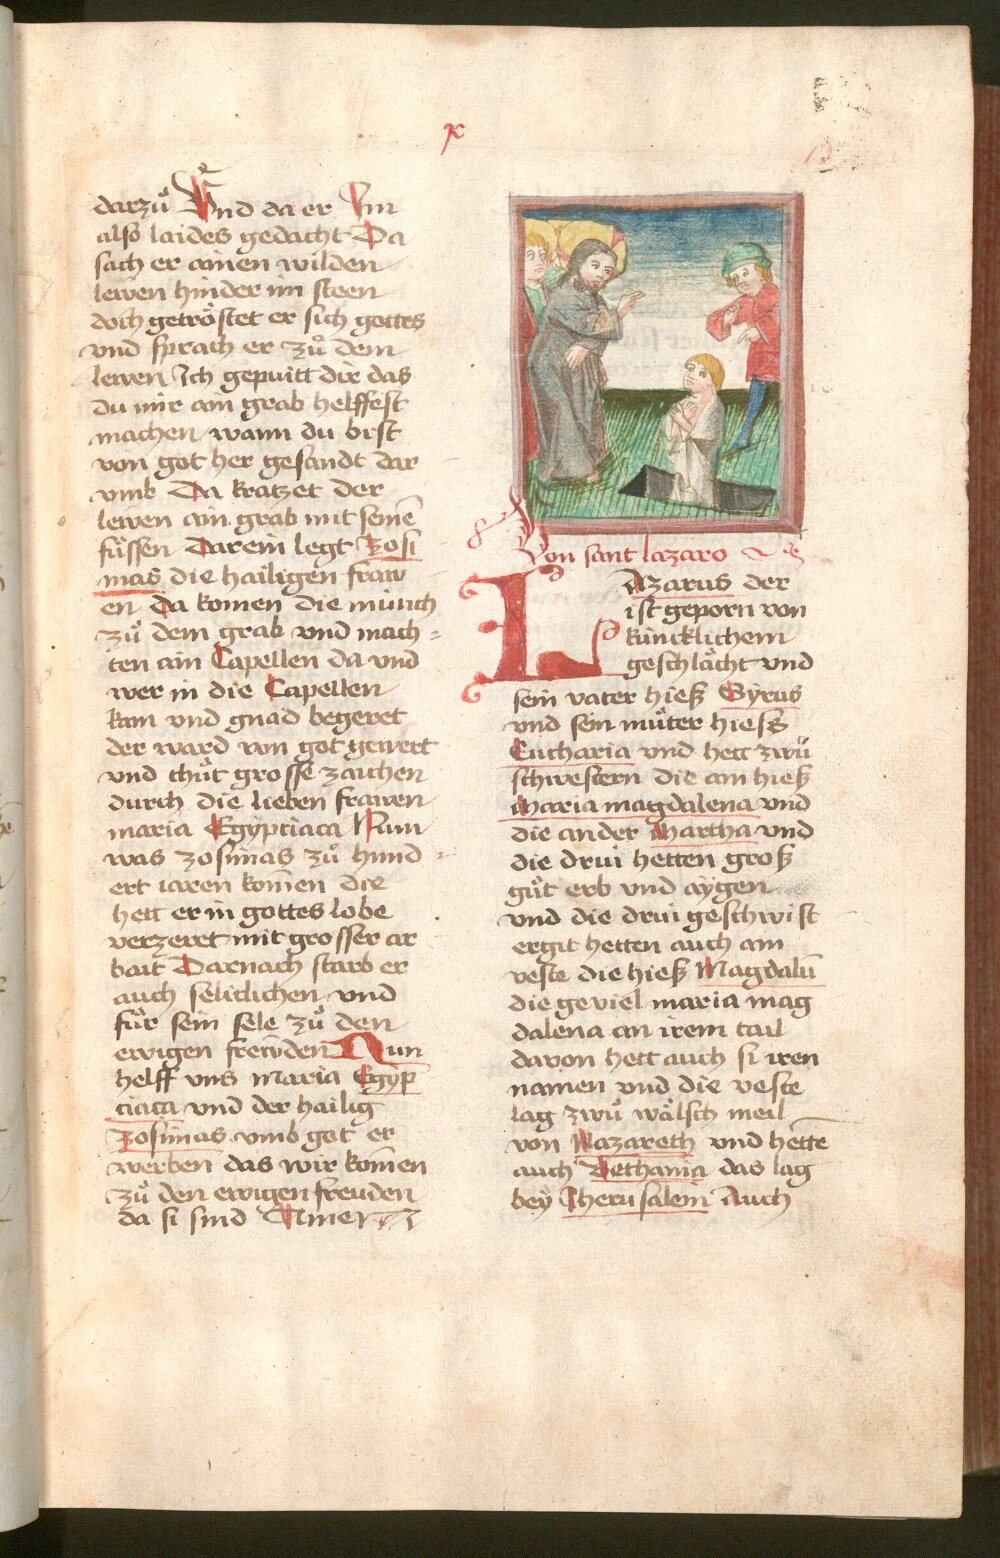 x
darzuͦ Vnd da er Im
also laides gedacht Da
sach er ainen wilden
lewen hinder im steen
doch getroͤstet er sich gottes
vnd sprach er zuͦ dem
lewen Ich gepuitt dir das
du mir ain grab helffest
machen wann du bist
von got her gesandt dar
vmb Da kratzet der
lewen ain grab mit seinē
fuͤssen Darein legt Zosi
mas die hailigen fraw
en Da komen die münch
zuͦ dem grab vnd mach-
ten ain Capellen da vnd
wer in die Capellen
kam vnd gnad begeret
der ward von got gewert
vnd thuͦt grosse zaichen
durch die lieben frawen
maria Egyptiaca Nun
was zosimas zuͦ hund-
ert iaren komen die
hett er in gottes lobe
verzeret mit grosser ar
bait Darnach starb er
auch seliclichen vnd
fuͦr sein sele zuͦ den
ewigen frewden Nun
helff vns maria Egyp
ciaca vnd der hailig
Zosimas vmb got er
werben das wir komen
zuͦ den ewigen freuden
da si sind Amen
Von sant lazaro
LAzarus der
ist geporn von
küncklichem
geschlaͤcht vnd
sein vater hieß Syrus
vnd sein muͦter hiess
Eucharia vnd hett zwuͦ
schwestern die ain hieß
Maria magdalena vnd
die ander Martha vnd
die drui hetten groß
guͦt erb vnd aygen
vnd die drui geschwist
ergit hetten auch ain
veste die hieß Magdalū
die geviel maria mag
dalena an irem tail
davon hett auch si iren
namen vnd die veste
lag zwuͦ waͤlsch meil
von Nazareth vnd hettē
auch Bethania das lag
bey Jherusalem Auch